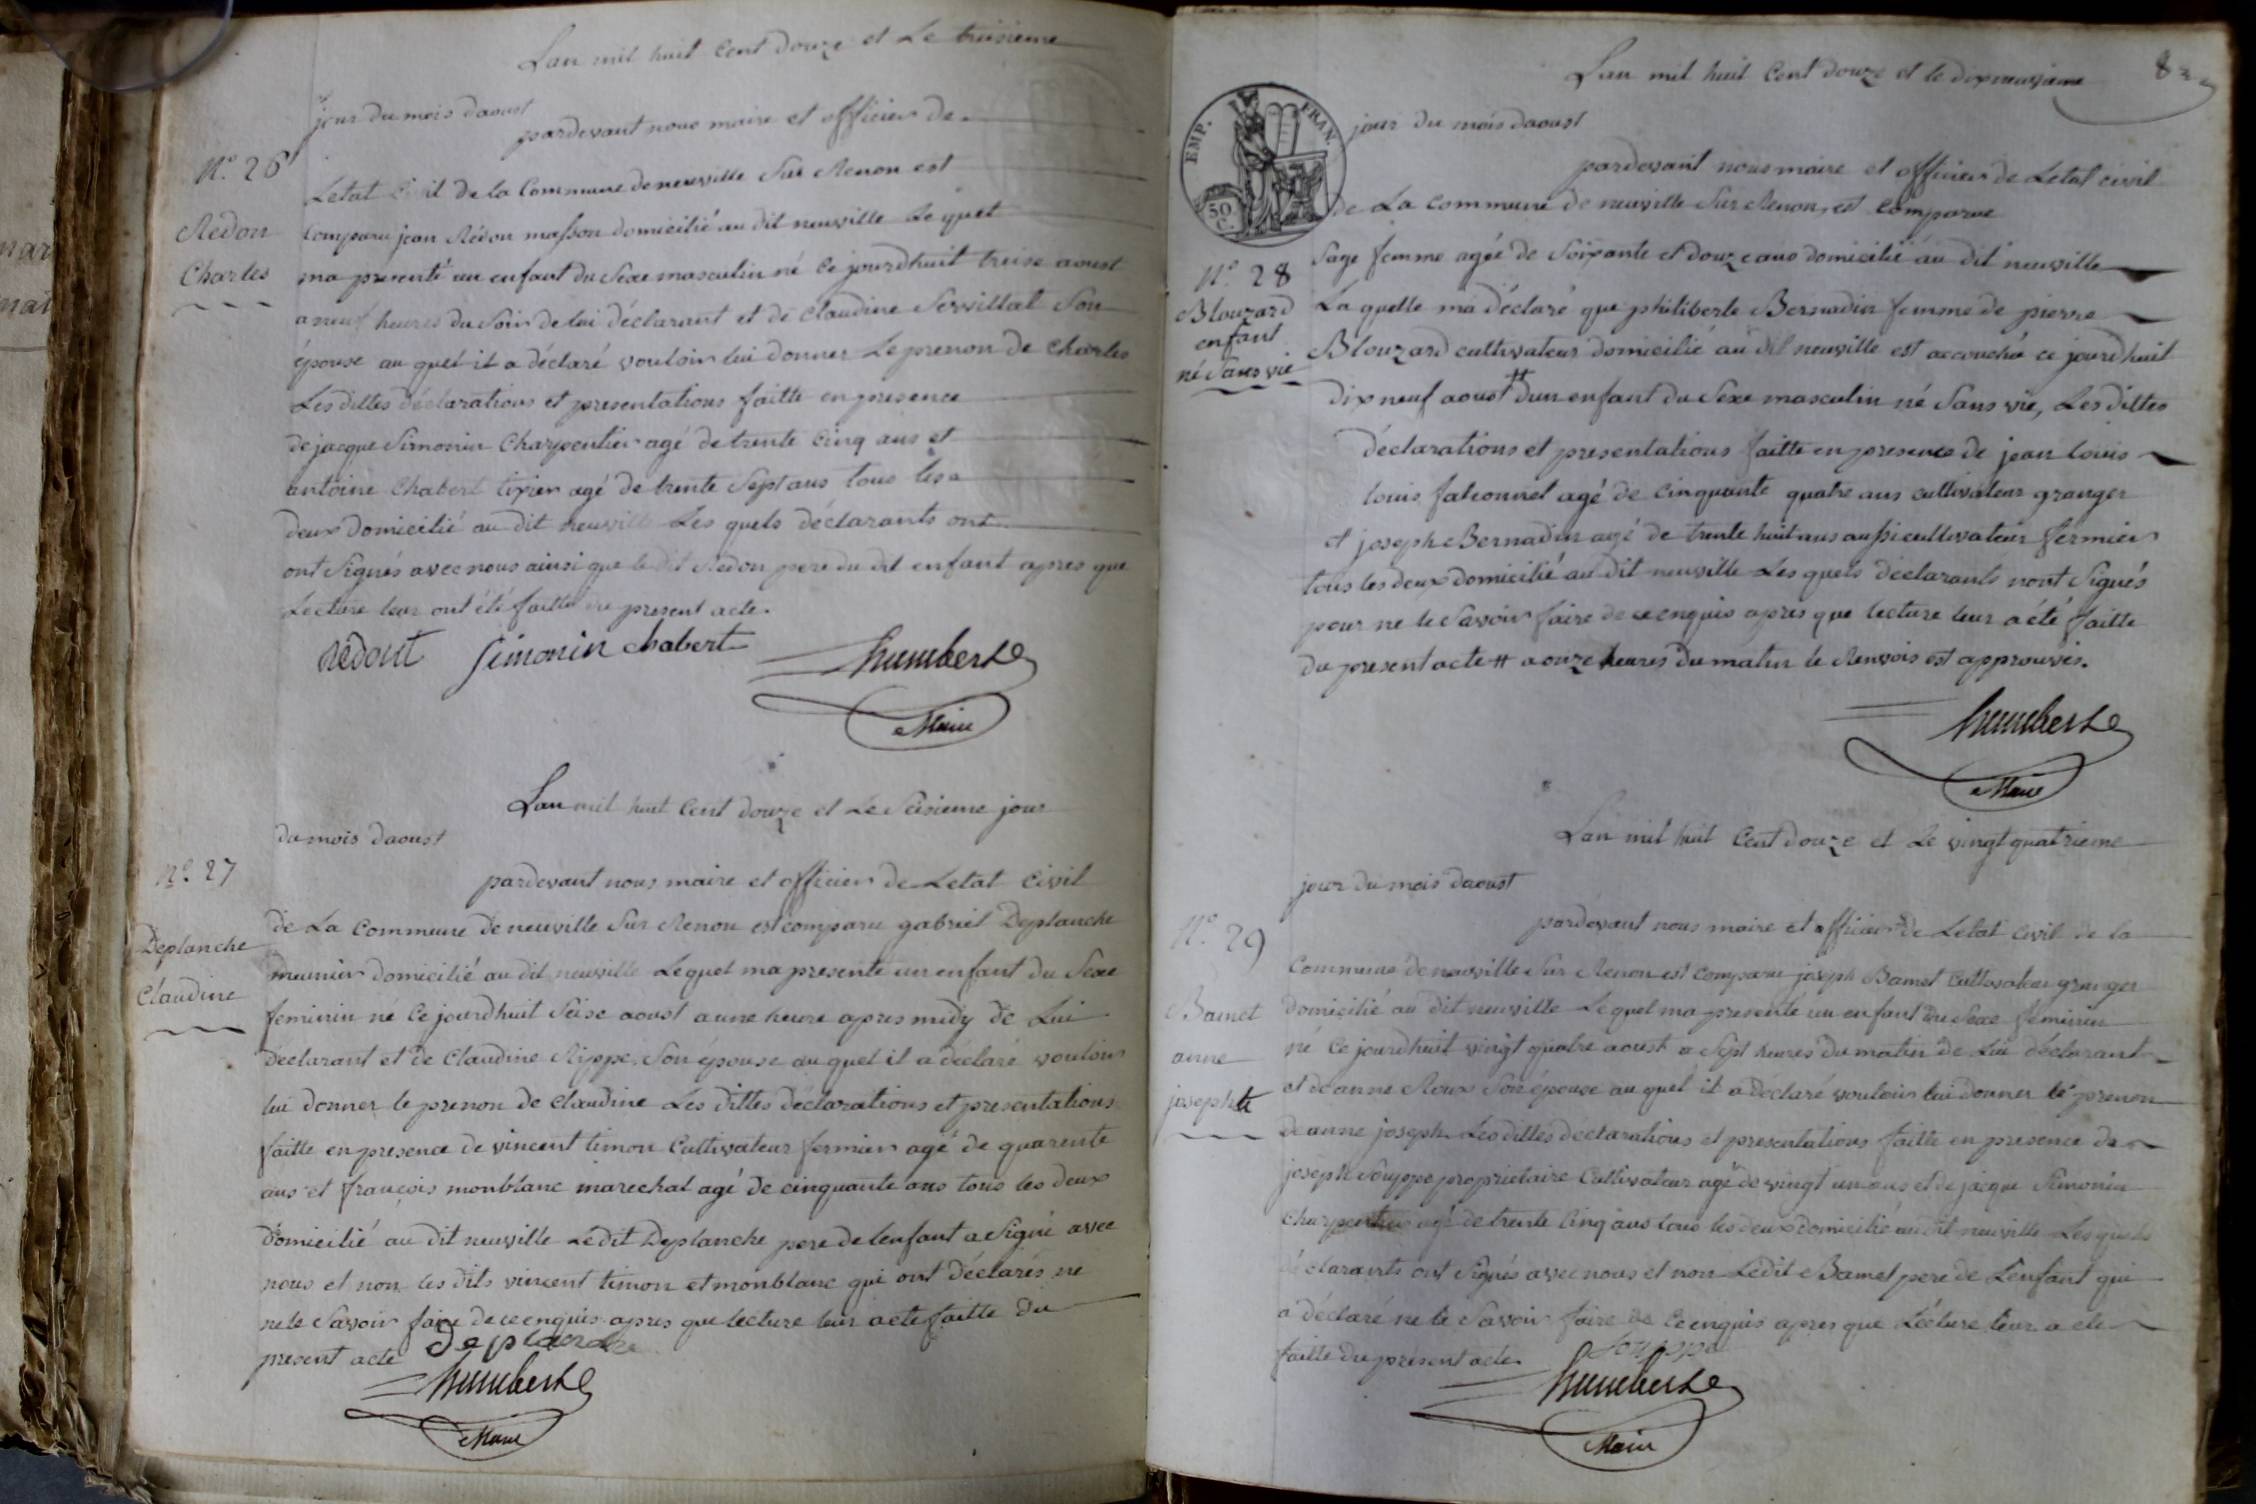 Lan mil huit Cent douze et Le treisieme
jour du mois daoust
pardevant nous maire et officier de
N.° 26
Letat civil de la Commune de neuville Sur Renon est
Redon
Comparu jean Rédon masson domicilié au dit neuville Le quel
Charles
ma presenté un enfant du Sexe masculin né Ce jourdhuit treise aoust
a neuf heures du Soir de lui déclarant et de Claudine Servillat Son
épouse au quel it a déclaré vouloir lui donner Le prenon de Charles
Les dittes déclarations et presentations faitte en presence
de jacque Simonin Charpentier agé de trente Cinq ans et
antoine Chabert tixier agé de trente Sept ans tous les
deux domicilié au dit neuville Les quels déclarants ont
ont Signés avec nous ainsi que le dit Redon pere du dit enfant apres que
Lecture leur ont été faitte du present acte.
redont Simonin chabert humbert
Maire
Lan mil huit Cent douze et Le Seisieme jour
du mois daoust
N.° 27
pardevant nous maire et officier de Letat Civil
de La Commune de neuville Sur Renon est comparu gabriel Deplanche
Deplanche
meunier domicilié au dit neuville Lequel ma presenté un enfant du Sexe
Claudine
feminin né Ce jourdhuit Seise aoust a une heure apres midy de Lui
déclarant et de Claudine Rippe Son épouse au quel it a déclaré vouloir
lui donner le prenon de Claudine Les dittes déclarations et presentations
faitte en presence de vincent timon Cultivateur fermier agé de quarente
ans et françois monblanc marechal agé de cinquante ans tous les deux
domicilié au dit neuville Ledit Deplanche pere de lenfant a Signé avec
nous et non les dits vincent timon et monblanc qui ont déclarés ne
ne le Savoir faire de ce enquis apres que lecture leur a eté faitte du
present acte Deplanche
humbert
Maire
Lan mil huit Cent douze et le dixneuvieme
jour du mois daoust
EMP. FRAN.
50 C.
pardevant nous maire et officier de Letat civil
de La commune de neuville Sur Renon, est Comparue
Sage femme agée de Soixante et douze ans domicilié au dit neuville
N.° 28
La quelle ma déclaré que philiberte Bernadin femme de pierre
Blouzard
enfant
Blouzard cultivateur domicilié au dit neuville est accouchée ce jourdhuit
né Sans vie
dix neuf aoust # dun enfant du Sexe masculin né Sans vie, Les dittes
déclarations et presentations faitte en presence de jean louis
louis falconnet agé de Cinquante quatre ans cultivateur granger
et joseph Bernadin agé de trente huit ans aussi cultivateur fermier
tous les deux domicilié au dit neuville Les quels déclarants nont Signés
pour ne le Savoir faire de ce enquis apres que lecture leur a été faitte
du present acte # a onze heures du matin le Renvois est approuvés.
humbert
Maire
Lan mil huit Cent douze et Le vingt quatrieme
jour du mois daoust
pardevant nous maire et officier de Letat civil de la
N.° 29
Commune de neuville Sur Renon est Comparu joseph Bamet Cultivateur granger
Bamet
domicilié au dit neuville Lequel ma presenté un enfant du Sexe feminin
anne
né Ce jourdhuit vingt quatre aoust a Sept heures du matin de Lui déclarant
josephte
et de anne Roux Son épouse au quel it a déclaré vouloir lui donner le prenon
de anne joseph Les dittes déclarations et presentations faitte en presence de
joseph Souppe proprietaire Cultivateur agé de vingt un ans et de jacque Simonin
Charpentier agé de trente Cinq ans tous les deux domicilié au dit neuville Les quels
déclarants ont Signés avec nous et non Ledit Bamet pere de Lenfant qui
a déclaré ne le Savoir faire de Ce enquis apres que Lecture leur a ete
faitte du present acte. Souppe
humbert
Maire